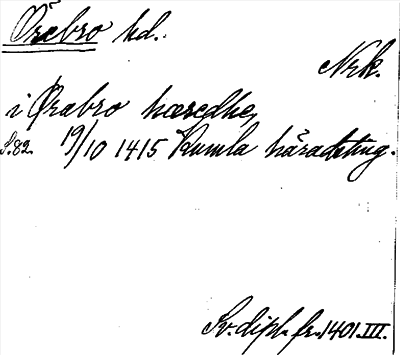 Örebro hd.
Nrk.
i Ørabro hæredhe,
S.82. 19/10 1415 Kumla häradsting.
Sv. dipl. fr. 1401. III.